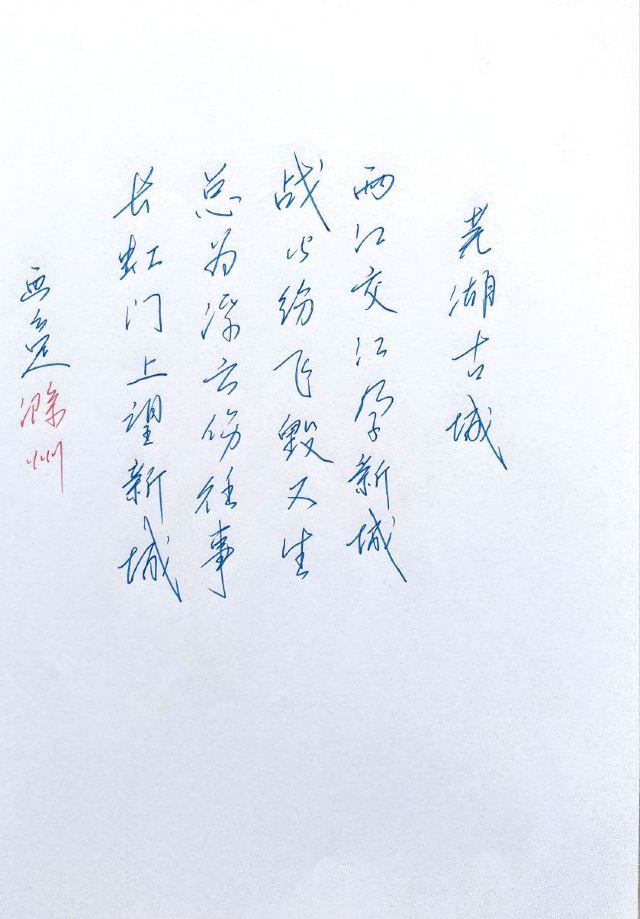 芜湖古城
两江交江孕新城
战火纷飞毁又生
总为浮云伤往事
长虹门上望新城
西 滁州